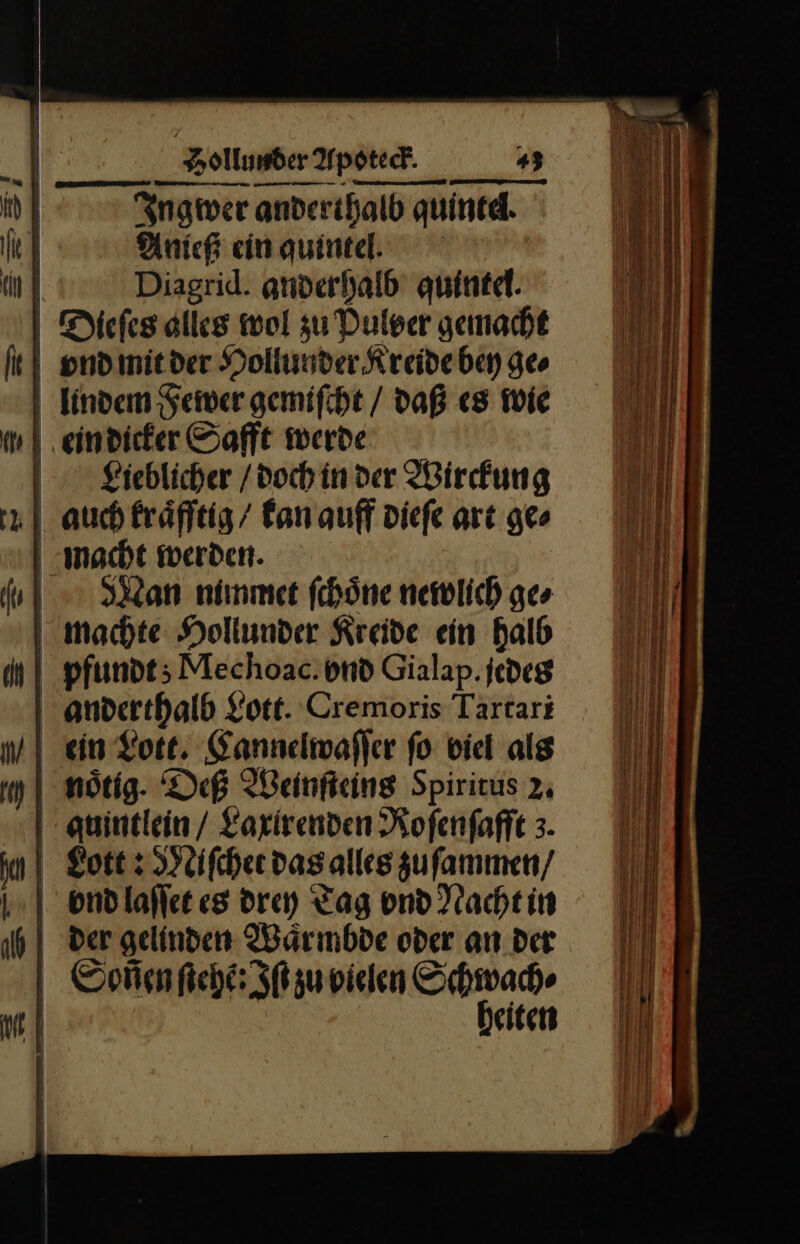 Hollunder Apoteck. 43
Ingwer anderthalb quintel.
Anieß ein quintel.
Diagrid. anderhalb quintel.
Dieſes alles wol zu Pulver gemacht
vnd mit der Hollunder Kreide bey ge⸗
lindem Fewer gemiſcht / daß es wie
ein dicker Safft werde
Lieblicher / doch in der Wirckung
auch kraͤfftig / kan auff dieſe art ge⸗
macht werden.
Man nimmet ſchoͤne newlich ge⸗
machte Hollunder Kreide ein halb
pfundt; Mechoac. vnd Gialap. jedes
anderthalb Lott. Cremoris Tartari
ein Lott. Cannelwaſſer ſo viel als
noͤtig. Deß Weinſteins Spiritus 2.
quintlein / Laxirenden Roſenſafft 3.
Lott : Miſchet das alles zuſammen /
vnd laſſet es drey Tag vnd Nacht in
der gelinden Waͤrmbde oder an der
Soñen ſtehẽ: Iſt zu vielen Schwach⸗
heiten